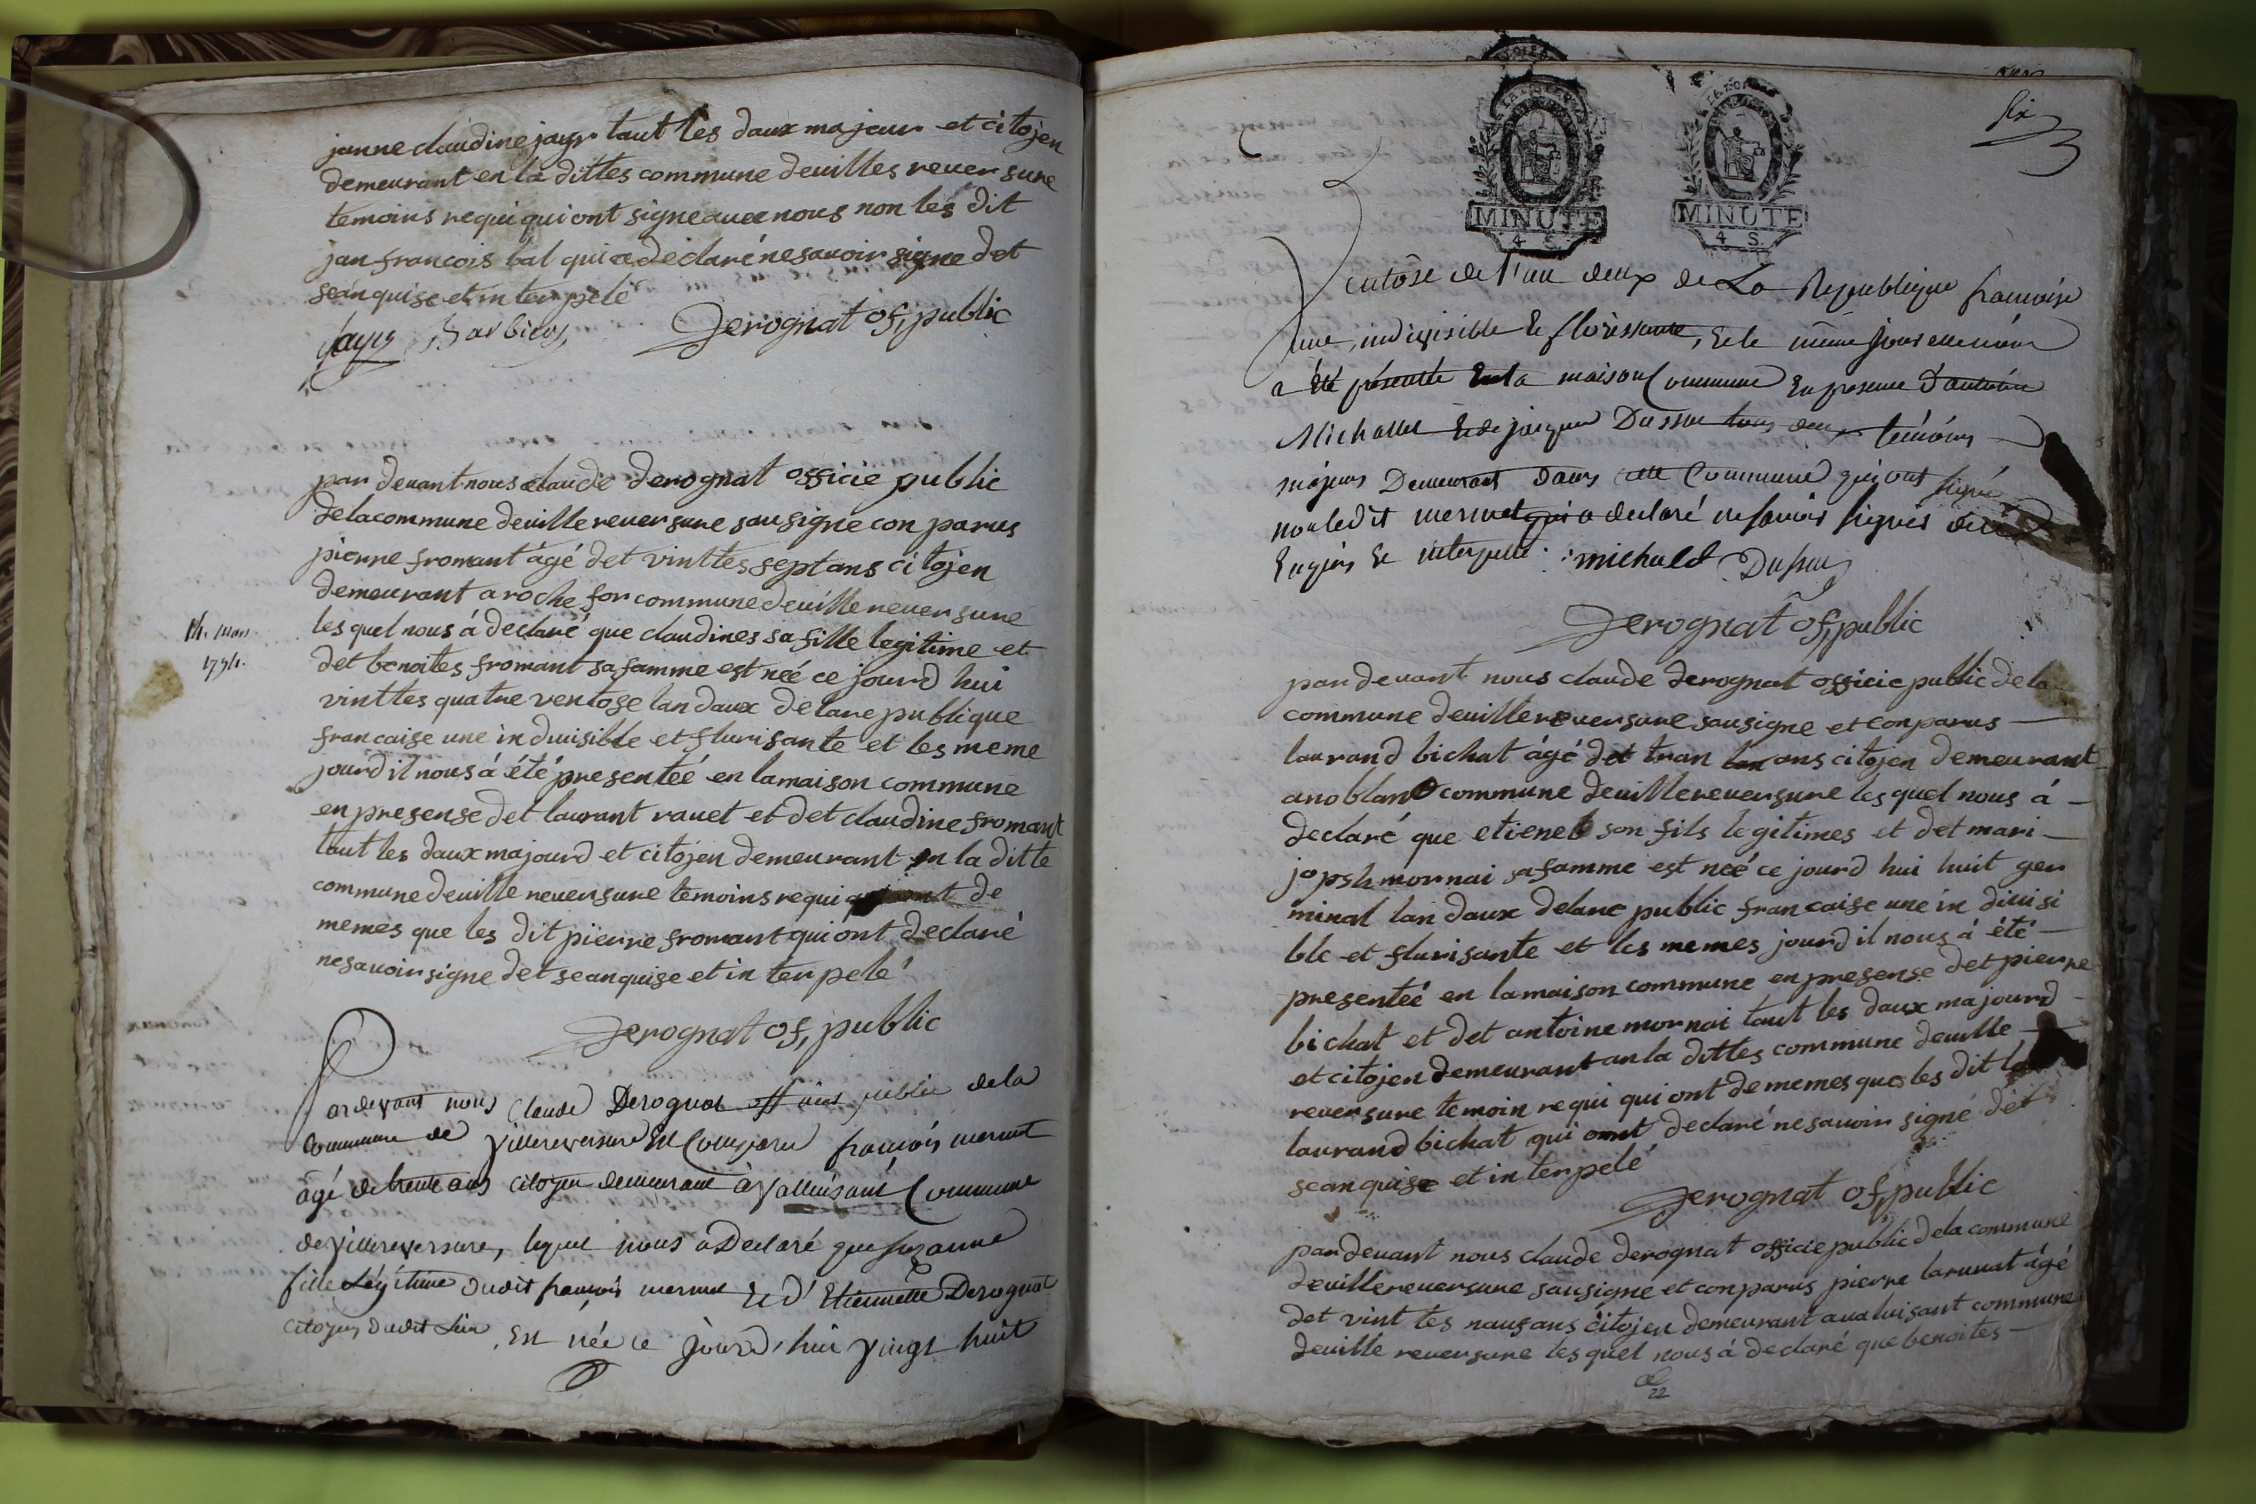 janne claudine jayr taut les daux majeur et citojen
demeurant en la dittes commune deuilles reuersure
temoins requi qui ont signe auec nous non les dit
jan francois bal qui a declaré ne sauoir signe det
seanquise et in terpelé
jayr Barbier
Derognat of, public
par deuant nous claude derognat officie public
delacommune deuille reuersure sausigne con parus
pierre fromant àgé det vinttes septans citojen
demeurant a roche for commune deuille reuersure
les quel nous á declaré que claudines sa fille legitime et
det benoites fromant sa famme est neé ce jourd hui
vinttes quatre ventose lan daux delare publique
francaise une in duisible et flurisante et les meme
jourd il nous á été presenteé en lamaison commune
en presense det laurant rauet et det claudine fromant
taut les daux majourd et citojen demeurant en la ditte
commune deuille reuersure temoins requi qui ont de
memes que les dit pierre fromant qui ont declaré
nesauoir signe det seanquise et in terpelé
14. mars
1794.
Derognat of, public
Pardevant nous Claude Derognat officier public de la
Commune de Villereversure Est Comparu françois mermet
âgé de trente ans citoyen demeurant à Valluisant Commune
de Villereversure, lequel nous a Declaré que suzanne
fille Légitime dudit françois mermet Et d'Etiennette Derognat
citoyens dudit Lieu Est née ce jourd'hui vingt huit
six
MINUTE
4 S.
MINUTE
4 S.
Ventôse de l'an deux de La République françoise
une, indivisible & florissante, & le même jour
a été présentée En la maison Commune En presence d'antoine
Michallet & de jacques Dussuc tous deux témoins
majeurs Demeurant dans cette Commune qui ont signé
non ledit mermet qui a declaré ne savoir signer de ce
Enquis & interpellé. michald Dussuc
Derognat of, public
par deuant nous claude derognat officie public de la
commune deuille reuersure sausigne et con parus
laurand bichat àgé det tran ans citojen demeurant
anoblan commune deuille reuersure les quel nous á
declaré que etienet son fils legitimes et det mari
jopsh mornai sa famme est neé ce jourd hui huit ger
minal lan daux delare public francaise une in diuisi
ble et flurisante et les memes jourd il nous á été
presenteé en lamaison commune en presense det pierre
bichat et det antoine mornai taut les daux majourd
et citojen demeurant an la dittes commune deuille
reuersure temoin requi qui ont de memes que les dit
laurand bichat qui ont declaré nesauoir signé det
seanquise et in terpelé
Derognat of, public
par deuant nous claude derognat officie public de la commune
deuille reuersure sausigne et con parus pierre larunat àgé
det vint tes nauf ans citojen demeurant aualuisant commune
deuille reuersure les quel nous á declaré que benoites
22